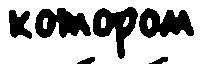 котором